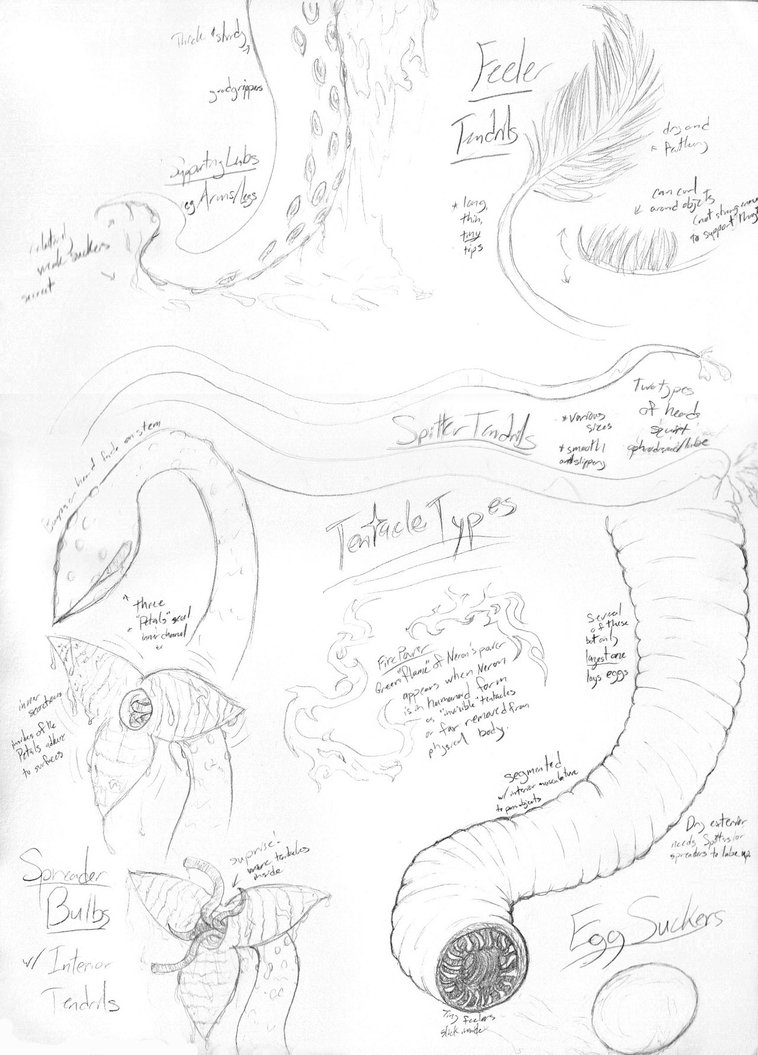 Thick & sturdy
good grippers
Supporting Limbs
eg Arms/legs
weak suckers
secret
Feeler
Tendrils
* long,
thin,
tiny
tips
dry and
feathery
can curl
around objects
(not strong enough
to support things)
Spitter Tendrils
* various
sizes
* smooth
and slippery
Two types
of heads
squirt
aphrodisiac/lube
on stem
three
"Petals" seal
inner channel
Tentacle Types
Fire Power
Green "flame" of Neron's power
appears when Neron
is in humanoid form
as "invisible" tentacles
or far removed from
physical body.
inner
secretions
insides of the
Petals adhere
to surfaces
Several
of these
but only
largest one
lays eggs
segmented
w/ interior musculature
to pass objects
Dry exterior
needs Spitters or
spreaders to lube up
Spreader
Bulbs
w/ Interior
Tendrils
suprise!
more tentacles
inside
Egg Suckers
Tiny feelers
slick inside